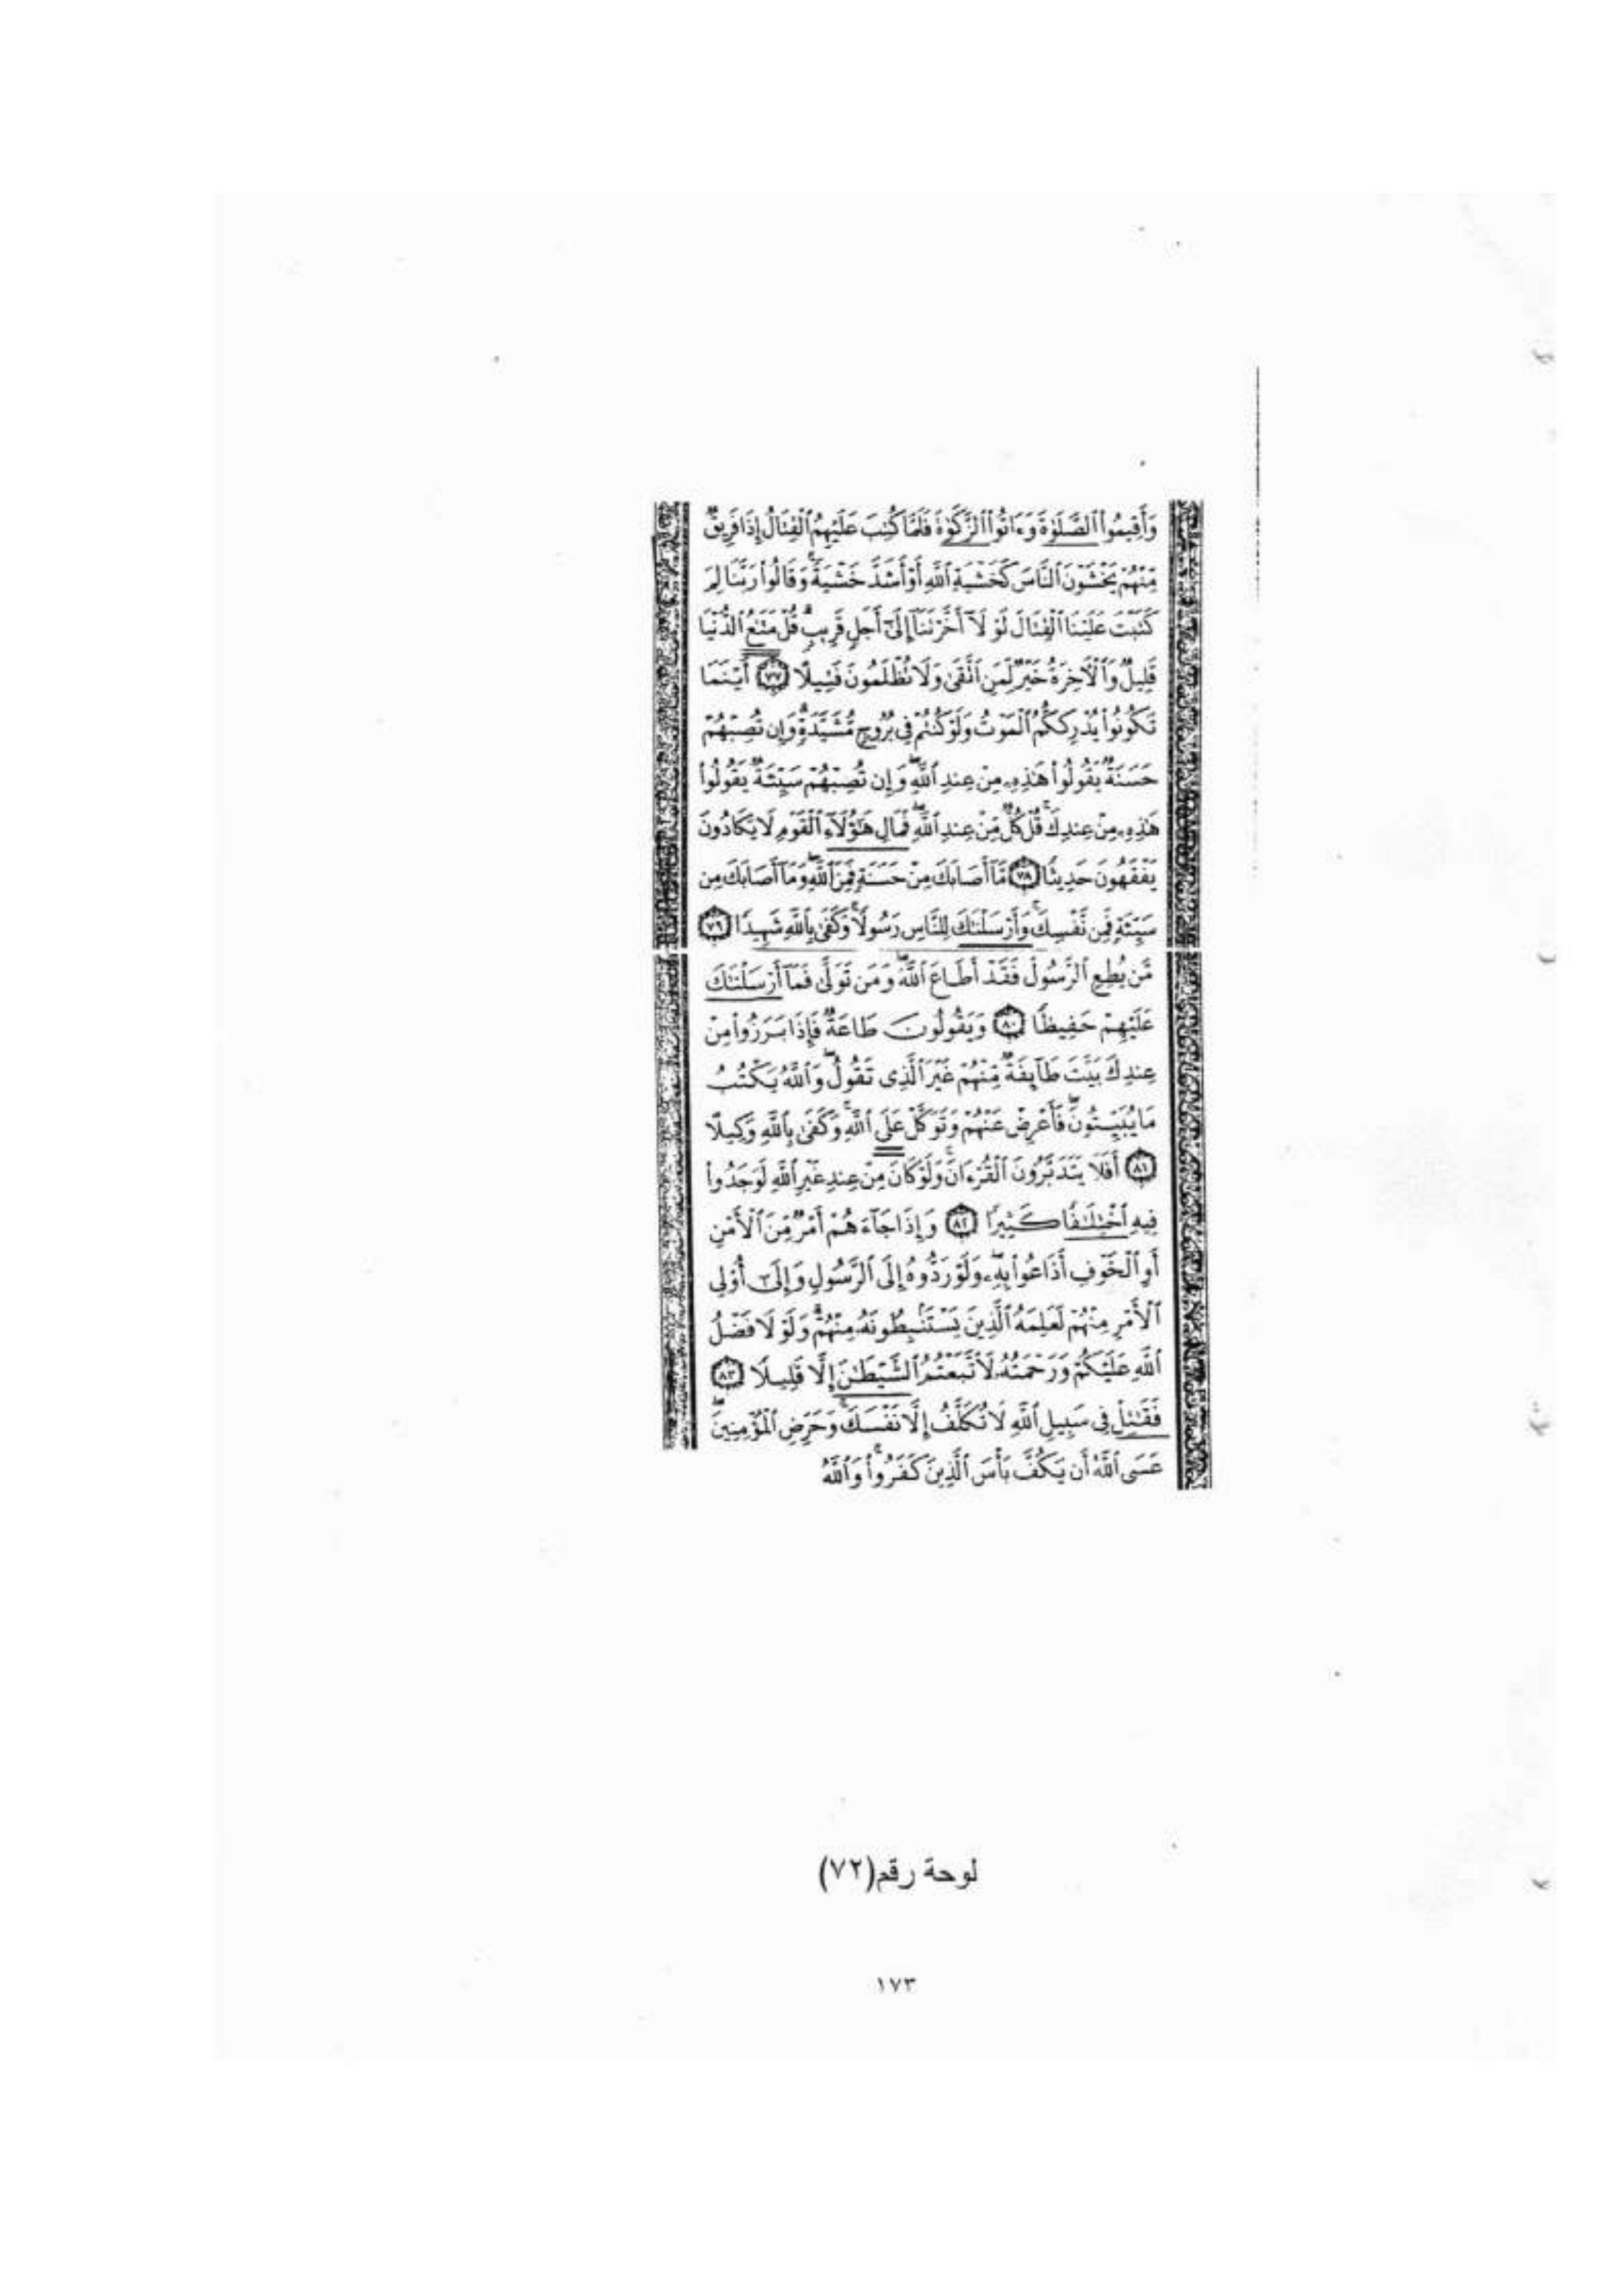 وَأَقِيمُوا۟ ٱلصَّلَوٰةَ وَءَاتُوا۟ ٱلزَّكَوٰةَ فَلَمَّا كُتِبَ عَلَيْهِمُ ٱلْقِتَالُ إِذَا فَرِيقٌ
مِّنْهُمْ يَخْشَوْنَ ٱلنَّاسَ كَخَشْيَةِ ٱللَّهِ أَوْ أَشَدَّ خَشْيَةً ۚ وَقَالُوا۟ رَبَّنَا لِمَ
كَتَبْتَ عَلَيْنَا ٱلْقِتَالَ لَوْلَآ أَخَّرْتَنَآ إِلَىٰٓ أَجَلٍ قَرِيبٍ ۗ قُلْ مَتَـٰعُ ٱلدُّنْيَا
قَلِيلٌ وَٱلْأَخِرَةُ خَيْرٌ لِّمَنِ ٱتَّقَىٰ وَلَا تُظْلَمُونَ فَتِيلًا ٧٧ أَيْنَمَا
تَكُونُوا۟ يُدْرِككُّمُ ٱلْمَوْتُ وَلَوْ كُنتُمْ فِى بُرُوجٍ مُّشَيَّدَةٍ ۗ وَإِن تُصِبْهُمْ
حَسَنَةٌ يَقُولُوا۟ هَـٰذِهِۦ مِنْ عِندِ ٱللَّهِ ۖ وَإِن تُصِبْهُمْ سَيِّئَةٌ يَقُولُوا۟
هَـٰذِهِۦ مِنْ عِندِكَ ۚ قُلْ كُلٌّ مِّنْ عِندِ ٱللَّهِ ۖ فَمَالِ هَـٰٓؤُلَآءِ ٱلْقَوْمِ لَا يَكَادُونَ
يَفْقَهُونَ حَدِيثًا ٧٨ مَّآ أَصَابَكَ مِنْ حَسَنَةٍ فَمِنَ ٱللَّهِ ۖ وَمَآ أَصَابَكَ مِن
سَيِّئَةٍ فَمِن نَّفْسِكَ ۚ وَأَرْسَلْنَـٰكَ لِلنَّاسِ رَسُولًا ۚ وَكَفَىٰ بِٱللَّهِ شَهِيدًا ٧٩
مَّن يُطِعِ ٱلرَّسُولَ فَقَدْ أَطَاعَ ٱللَّهَ ۖ وَمَن تَوَلَّىٰ فَمَآ أَرْسَلْنَـٰكَ
عَلَيْهِمْ حَفِيظًا ٨٠ وَيَقُولُونَ طَاعَةٌ فَإِذَا بَرَزُوا۟ مِنْ
عِندِكَ بَيَّتَ طَآئِفَةٌ مِّنْهُمْ غَيْرَ ٱلَّذِى تَقُولُ ۖ وَٱللَّهُ يَكْتُبُ
مَا يُبَيِّتُونَ ۖ فَأَعْرِضْ عَنْهُمْ وَتَوَكَّلْ عَلَى ٱللَّهِ ۚ وَكَفَىٰ بِٱللَّهِ وَكِيلًا
٨١ أَفَلَا يَتَدَبَّرُونَ ٱلْقُرْءَانَ ۚ وَلَوْ كَانَ مِنْ عِندِ غَيْرِ ٱللَّهِ لَوَجَدُوا۟
فِيهِ ٱخْتِلَـٰفًا كَثِيرًا ٨٢ وَإِذَا جَآءَهُمْ أَمْرٌ مِّنَ ٱلْأَمْنِ
أَوِ ٱلْخَوْفِ أَذَاعُوا۟ بِهِۦ ۖ وَلَوْ رَدُّوهُ إِلَى ٱلرَّسُولِ وَإِلَىٰٓ أُو۟لِى
ٱلْأَمْرِ مِنْهُمْ لَعَلِمَهُ ٱلَّذِينَ يَسْتَنۢبِطُونَهُۥ مِنْهُمْ ۗ وَلَوْلَا فَضْلُ
ٱللَّهِ عَلَيْكُمْ وَرَحْمَتُهُۥ لَٱتَّبَعْتُمُ ٱلشَّيْطَـٰنَ إِلَّا قَلِيلًا ٨٣
فَقَـٰتِلْ فِى سَبِيلِ ٱللَّهِ لَا تُكَلَّفُ إِلَّا نَفْسَكَ ۚ وَحَرِّضِ ٱلْمُؤْمِنِينَ ۖ
عَسَى ٱللَّهُ أَن يَكُفَّ بَأْسَ ٱلَّذِينَ كَفَرُوا۟ ۚ وَٱللَّهُ
لوحة رقم(٧٢)
١٧٣